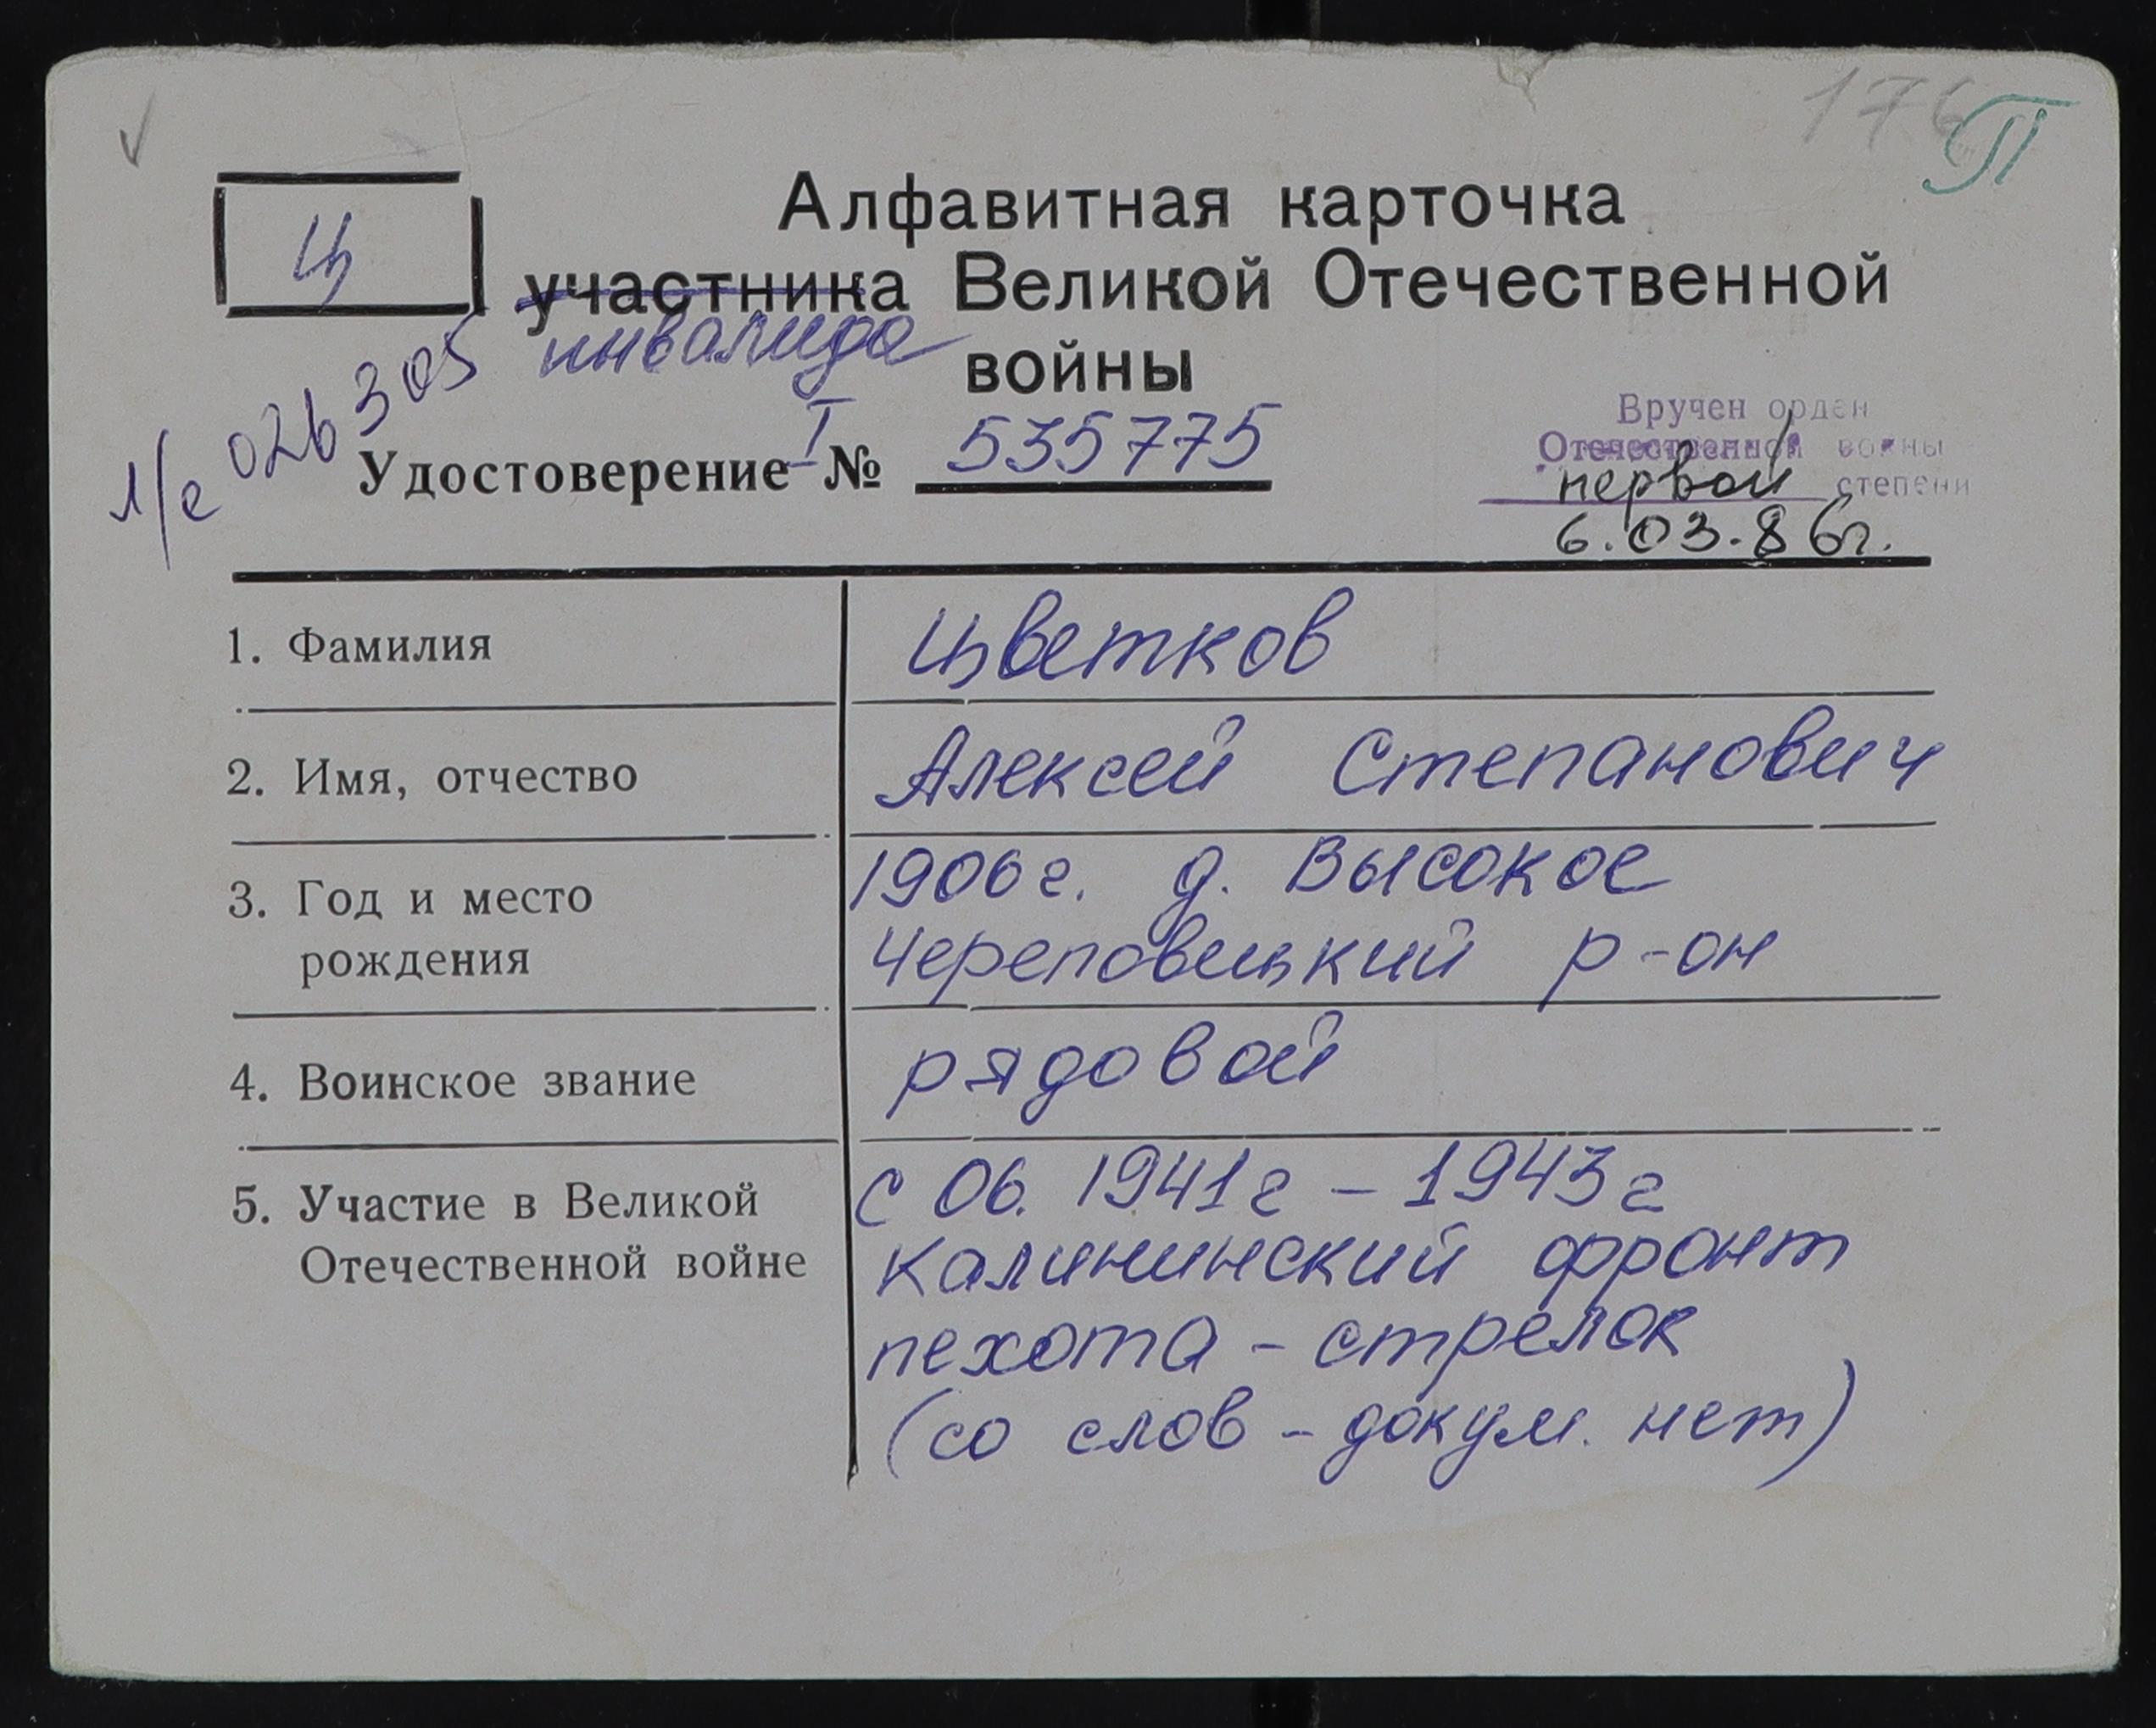 П
Ц
Алфавитная карточка
участника Великой Отечественной
инвалида
войны
л/е 026305
Удостоверение I № 535775
Вручен орден
Отечественной войны
первой степени
6.03.86г.
1. Фамилия Цветков
2. Имя, отчество Алексей Степанович
3. Год и место 1906г. д. Высокое
рождения Череповецкий р-он
4. Воинское звание рядовой
5. Участие в Великой с 06. 1941г – 1943г
Отечественной войне Калининский фронт
пехота – стрелок
(со слов – докум. нет)